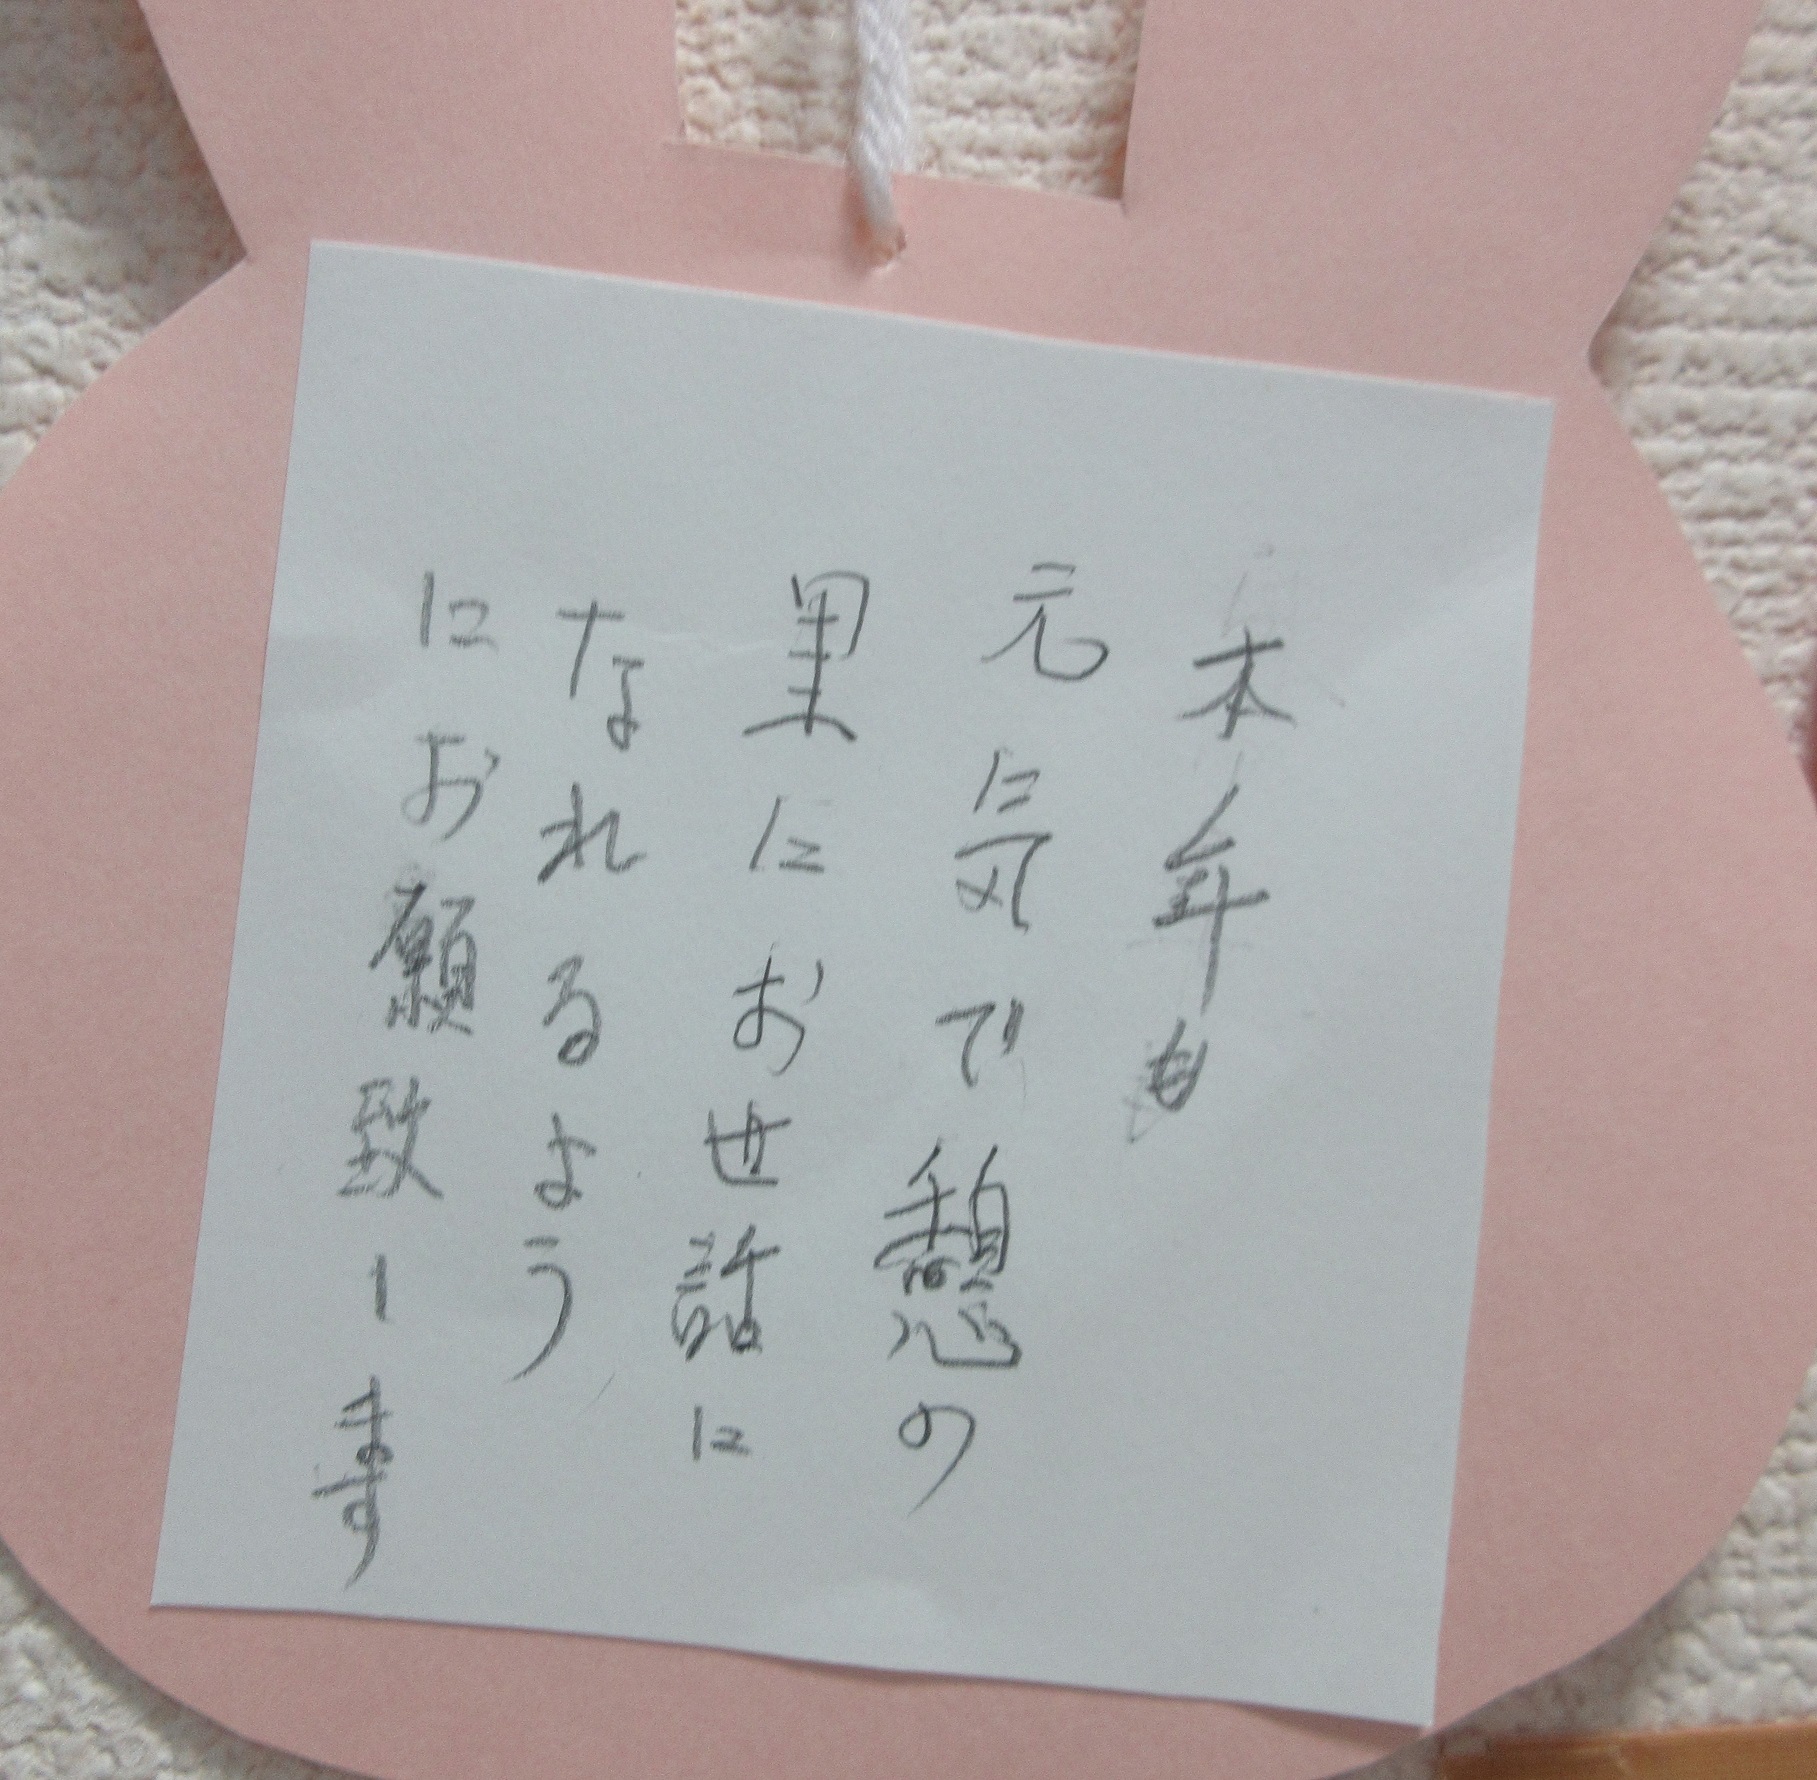 本年も
元に気で憩の
里にお世話に
なれるよう
にお願致します